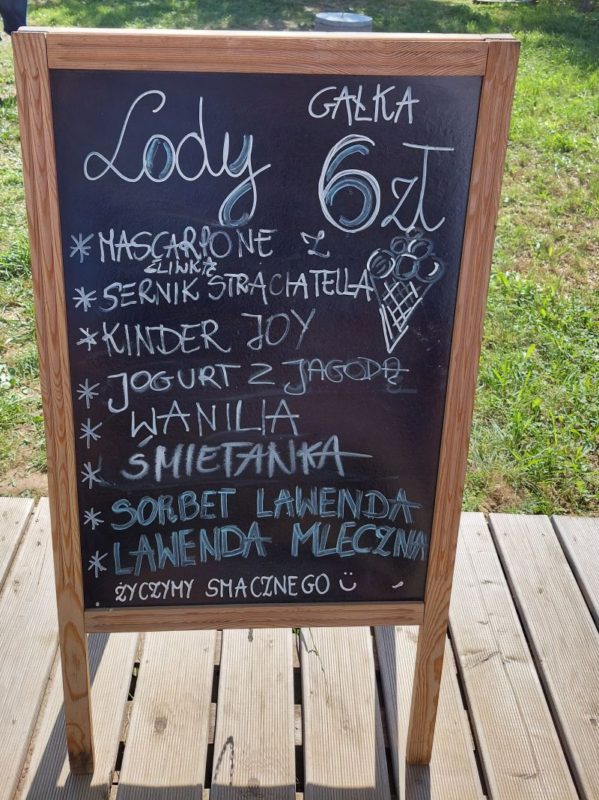 Lody
GAŁKA
6 zł
* MASCARPONE Z
ŚLIWKĄ
* SERNIK STRACIATELLA
* KINDER JOY
* JOGURT Z JAGODĄ
* WANILIA
* ŚMIETANKA
* SORBET LAWENDA
* LAWENDA MLECZNA
ŻYCZYMY SMACZNEGO ☺